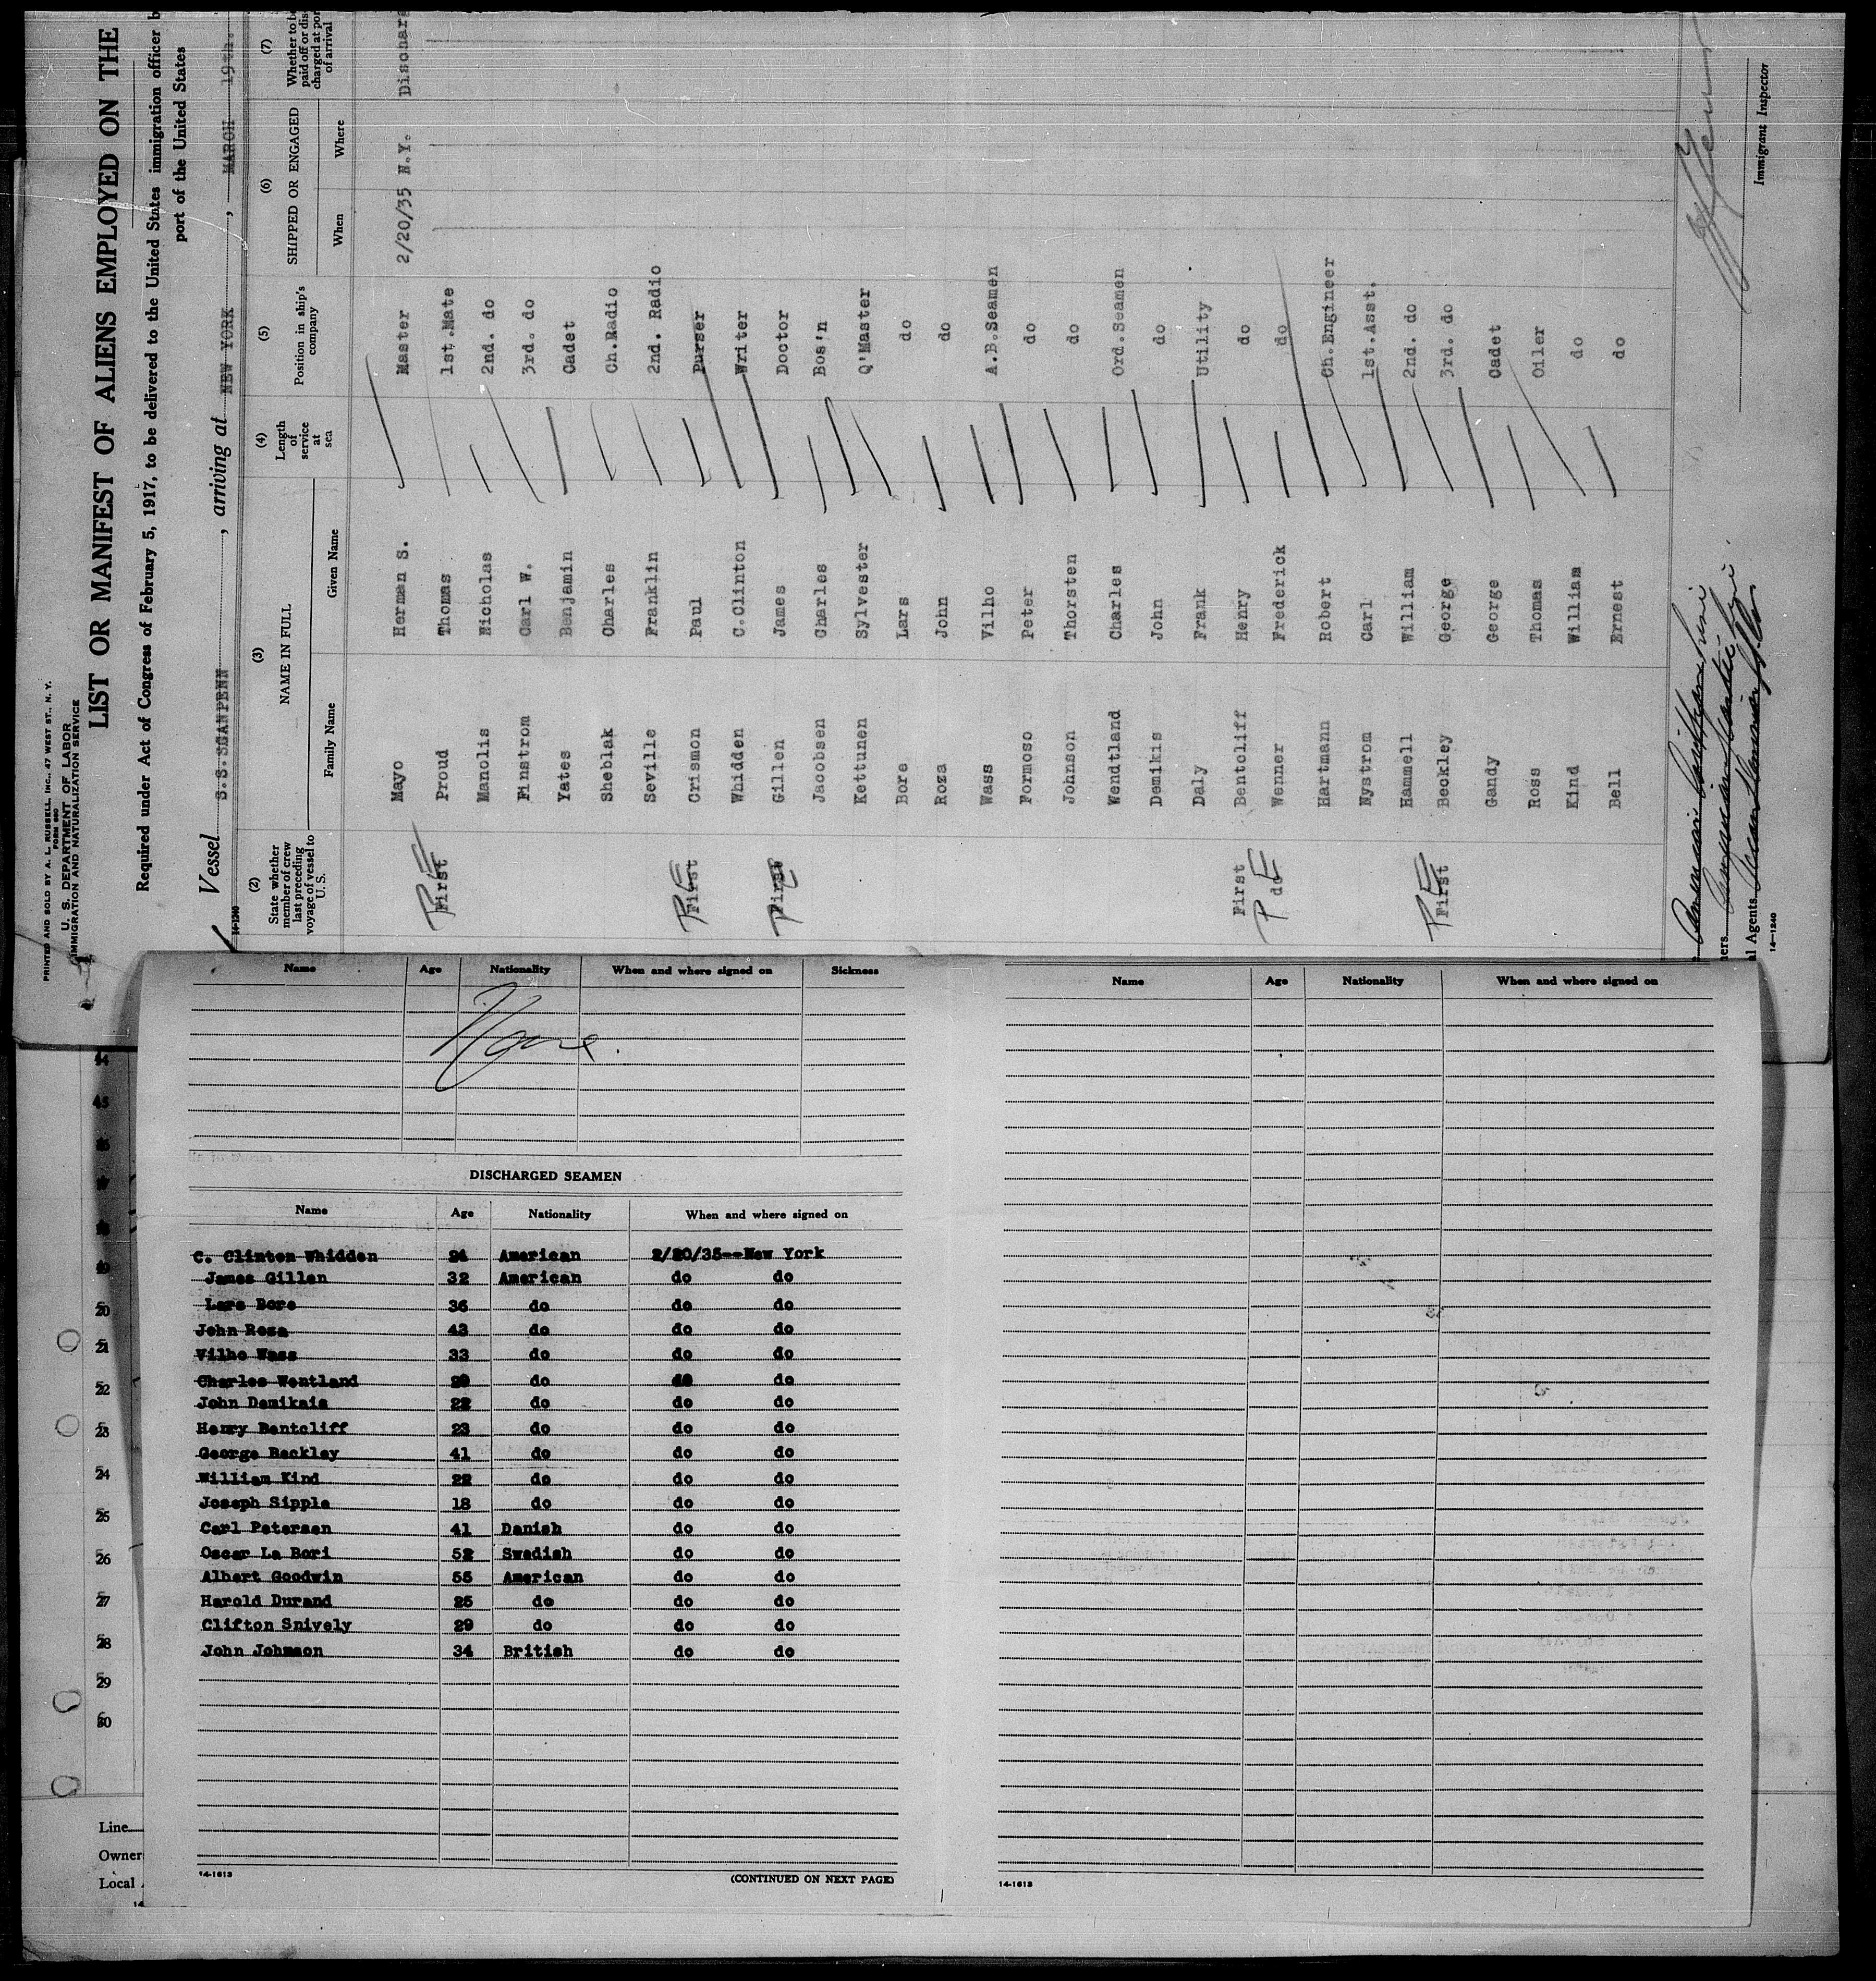 PRINTED AND SOLD BY A. L. RUSSELL, INC., 47 WEST ST., N. Y.
FORM 680
U. S. DEPARTMENT OF LABOR
IMMIGRATION AND NATURALIZATION SERVICE
LIST OR MANIFEST OF ALIENS EMPLOYED ON THE
Required under Act of Congress of February 5, 1917, to be delivered to the United States immigration officer b
port of the United States
Vessel S.S. SCANPENN, arriving at NEW YORK, MARCH 19th.
14-1240
(2) (3) (4) (5) (6) (7)
State whether member of crew last preceding voyage of vessel to U. S.
NAME IN FULL
Family Name Given Name
Length of service at sea
Position in ship's company
SHIPPED OR ENGAGED
When Where
Whether to be paid off or discharged at port of arrival
Mayo Herman S. Master 2/20/35 N.Y. Dischar
First Proud Thomas 1st.Mate
Manolis Nicholas 2nd. do
Finstrom Carl W. 3rd. do
Yates Benjamin Cadet
Sheblak Charles Ch.Radio
Seville Franklin 2nd. Radio
First Crismon Paul Purser
Whidden C.Clinton Writer
First Gillen James Doctor
Jacobsen Charles Bos'n
Kettunen Sylvester Q'Master
Bore Lars do
Roza John do
Wass Vilho A.B.Seamen
Formoso Peter do
Johnson Thorsten do
Wendtland Charles Ord.Seamen
Demikis John do
Daly Frank Utility
First Bentcliff Henry do
do Wenner Frederick do
Hartmann Robert Ch.Engineer
Nystrom Carl 1st.Asst.
Hammell William 2nd. do
First Beckley George 3rd. do
Gandy George Cadet
Ross Thomas Oiler
Kind William do
Bell Ernest do
PE
PE
PE
PE
PE
ners
al Agents
14-1240
Immigrant Inspector
Name Age Nationality When and where signed on Sickness
None.
DISCHARGED SEAMEN
Name Age Nationality When and where signed on
C. Clinton Whidden 24 American 2/20/35--New York
James Gillen 32 American do do
Lars Bore 36 do do do
John Roza 43 do do do
Vilho Wass 33 do do do
Charles Wentland do do do
John Demikais 22 do do do
Henry Bentcliff 23 do do do
George Beckley 41 do do do
William Kind 22 do do do
Joseph Sipple 18 do do do
Carl Petersen 41 Danish do do
Oscar La Bori 52 Swedish do do
Albert Goodwin 55 American do do
Harold Durand 25 do do do
Clifton Snively 29 do do do
John Johnson 34 British do do
14-1613
(CONTINUED ON NEXT PAGE)
Name Age Nationality When and where signed on
14-1613
Line
Owner
Local
14